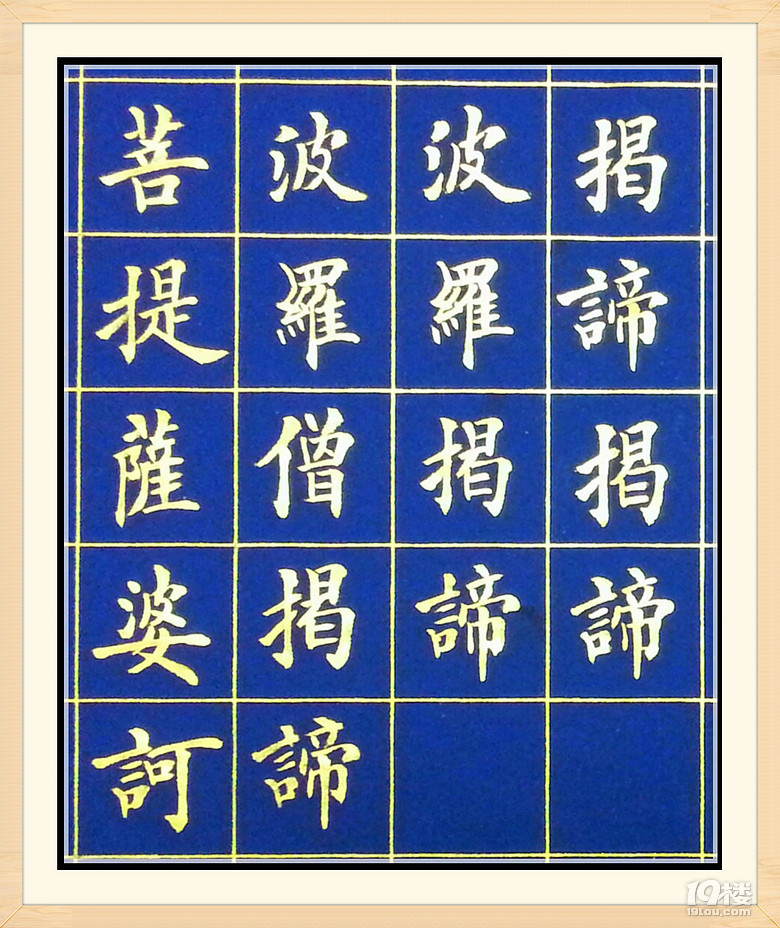 揭諦揭諦
波羅揭諦
波羅僧揭諦
菩提薩婆訶
19楼
19lou.com